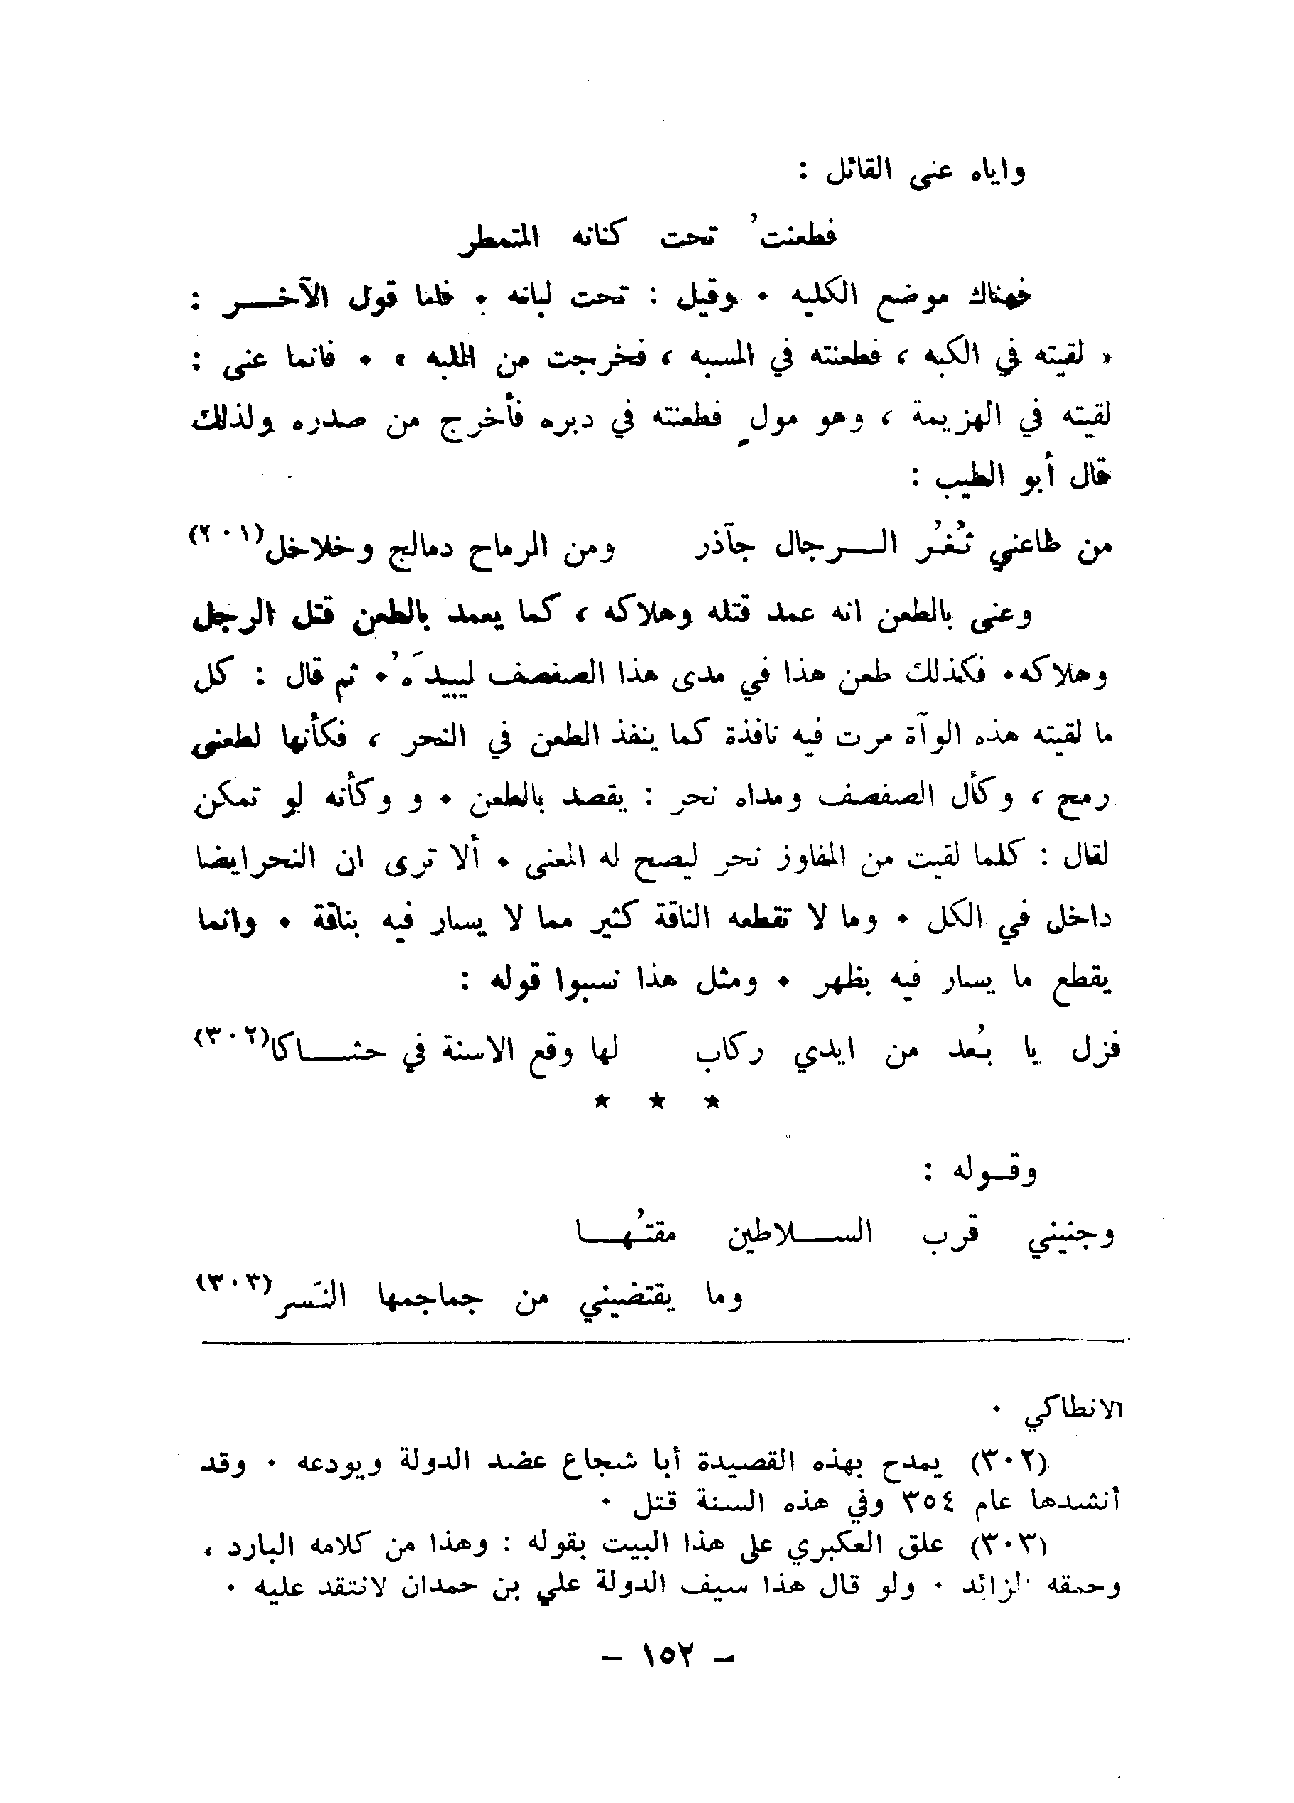 واياه عنى القائل :
فطعنتُ تحت كنانه المتمطر
فهناك موضع الكليه ٠ وقيل : تحت لبانه ٠ فاما قول الآخـــر :
« لقيته في الكبه ، فطعنته في السبه ، فخرجت من اللبه » ٠ فانما عنى :
لقيته في الهزيمة ، وهو مولٍ فطعنته في دبره فأخرج من صدره ولذلك
قال أبو الطيب :
من طاعني ثُغَُر الــرجال جآذر ومن الرماح دمالج وخلاخل(٢٠١)
وعنى بالطعن انه عمد قتله وهلاكه ، كما يعمد بالطعن قتل الرجل
وهلاكه٠ فكذلك طعن هذا في مدى هذا الصفصف ليبيدَهُ٠ ثم قال : كل
ما لقيته هذه الوآة مرت فيه نافذة كما ينفذ الطعن في النحر ، فكأنها لطعنى
رمح ، وكأل الصفصف ومداه نحر : يقصد بالطعن ٠ و وكأنه لو تمكن
لقال : كلما لقيت من المفاوز نحر ليصح له المعنى ٠ ألا ترى ان النحرايضا
داخل في الكل ٠ وما لا تقطعه الناقة كثير مما لا يسار فيه بناقة ٠ وانما
يقطع ما يسار فيه بظهر ٠ ومثل هذا نسبوا قوله :
فزل يا بُعد من ايدي ركاب لها وقع الاسنة في حشـــاكا(٣٠٢)
★ ★ ★
وقـوله :
وجنبني قرب الســـلاطين مقتُهـــا
وما يقتضيني من جماجمها النّسر(٣٠٣)
الانطاكي ٠
(٣٠٢) يمدح بهذه القصيدة أبا شجاع عضد الدولة ويودعه ٠ وقد
أنشدها عام ٣٥٤ وفي هذه السنة قتل ٠
(٣٠٣) علق العكبري على هذا البيت بقوله : وهذا من كلامه البارد ،
وحمقه الزائد ٠ ولو قال هذا سيف الدولة علي بن حمدان لانتقد عليه ٠
– ١٥٢ –